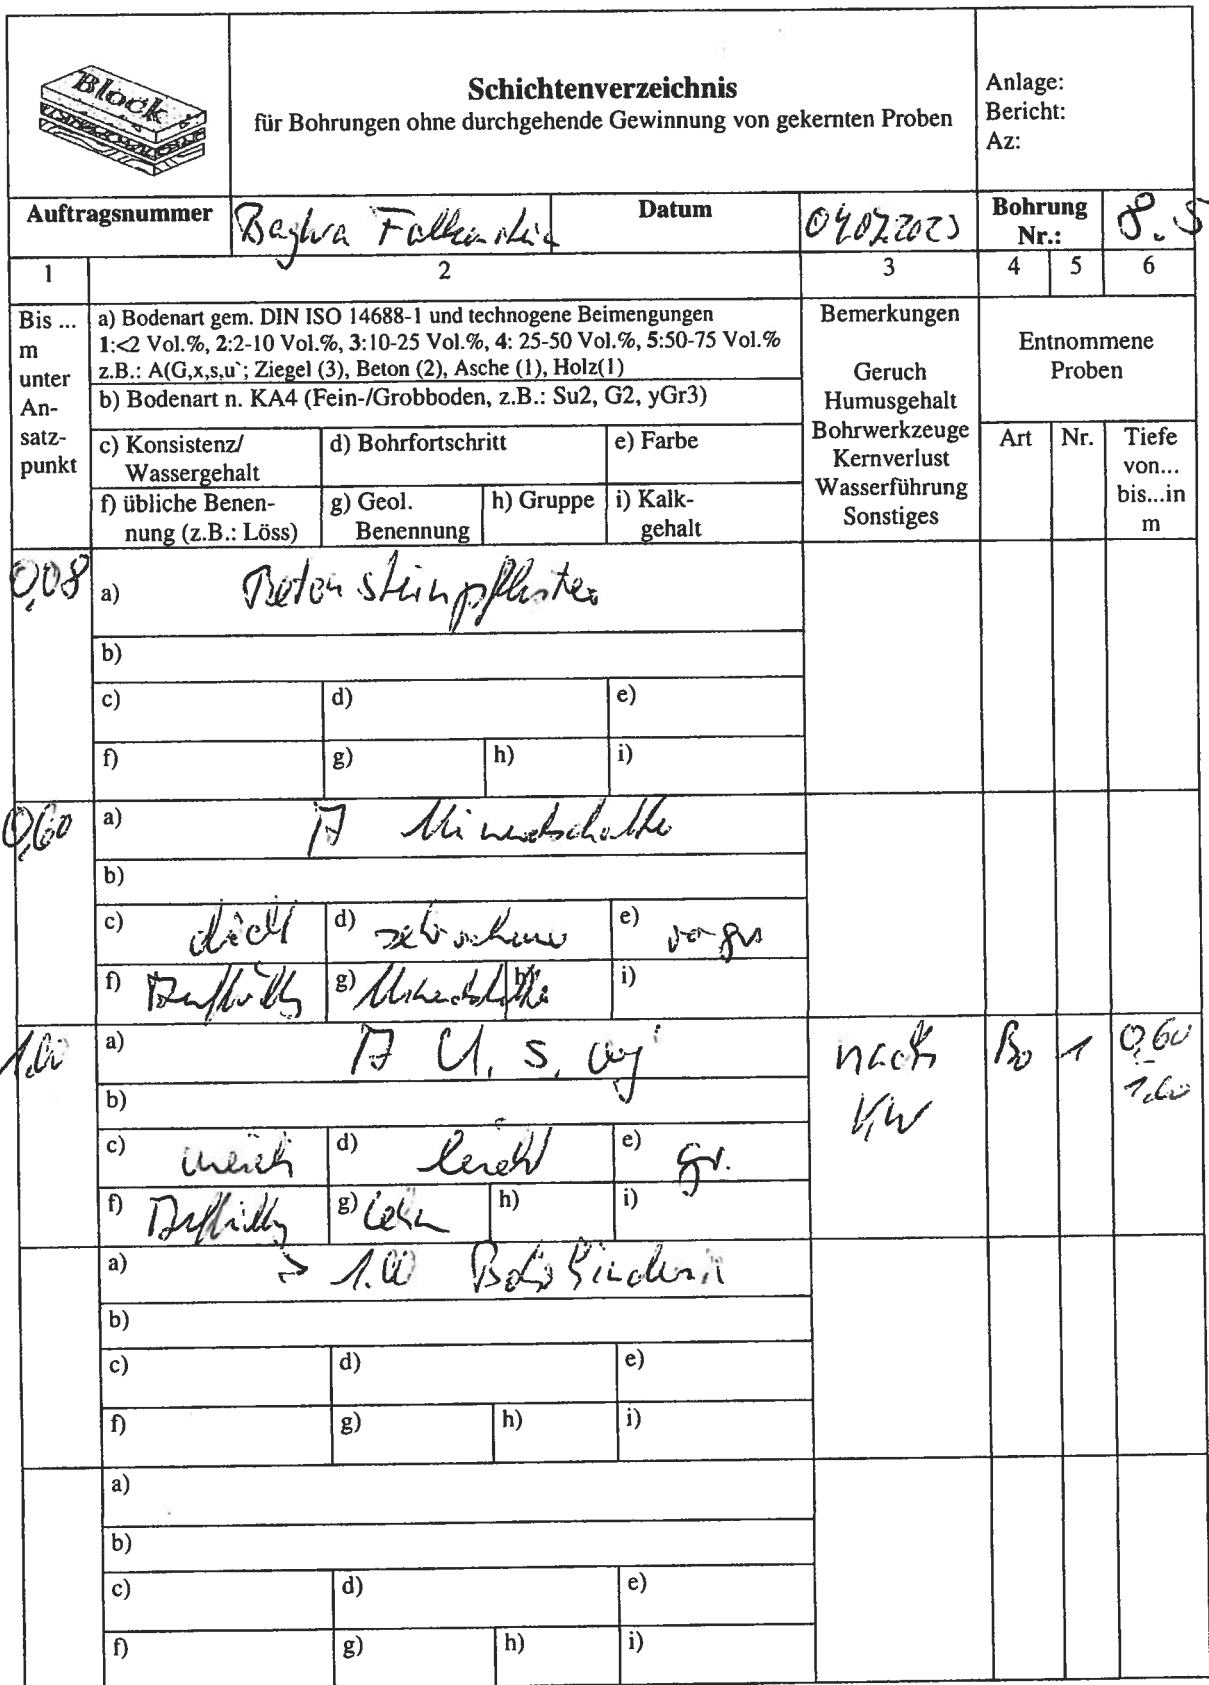 Block
Schichtenverzeichnis
für Bohrungen ohne durchgehende Gewinnung von gekernten Proben
Anlage:
Bericht:
Az:
Auftragsnummer
Datum
Bohrung
Nr.:
8.5
1
2
3
4
5
6
Bis ...
m
unter
An-
satz-
punkt
a) Bodenart gem. DIN ISO 14688-1 und technogene Beimengungen
1:<2 Vol.%, 2:2-10 Vol.%, 3:10-25 Vol.%, 4: 25-50 Vol.%, 5:50-75 Vol.%
z.B.: A(G,x,s,u`; Ziegel (3), Beton (2), Asche (1), Holz(1)
b) Bodenart n. KA4 (Fein-/Grobboden, z.B.: Su2, G2, yGr3)
c) Konsistenz/
Wassergehalt
d) Bohrfortschritt
e) Farbe
f) übliche Benen-
nung (z.B.: Löss)
g) Geol.
Benennung
h) Gruppe
i) Kalk-
gehalt
Bemerkungen
Geruch
Humusgehalt
Bohrwerkzeuge
Kernverlust
Wasserführung
Sonstiges
Entnommene
Proben
Art
Nr.
Tiefe
von...
bis...in
m
0,08
a) Betonsteinpflaster
b)
c)
d)
e)
f)
g)
h)
i)
0,60
a) A
b)
c) dicht
d) sehr schwer
e)
f) Auffüllg
g)
h)
i)
1.00
a) A U, s,
b)
c) weich
d) leicht
e) gr.
f) Auffüllg
g) Lehm
h)
i)
nach
KW
Bo
1
0,60
-
1,00
a) → 1.00
b)
c)
d)
e)
f)
g)
h)
i)
a)
b)
c)
d)
e)
f)
g)
h)
i)